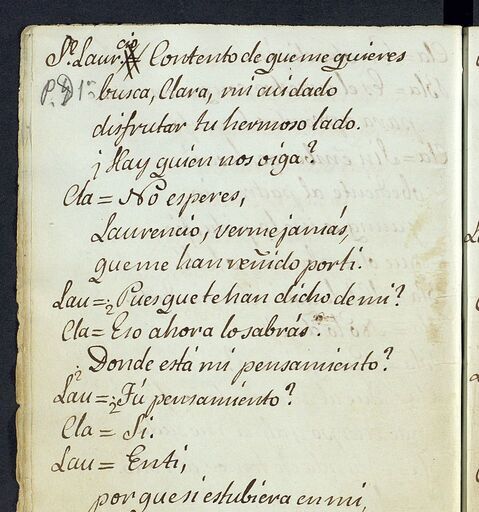 Sr. Laur.cio = Contento de que me quieres
P. D 1º busca, Clara, mi cuidado
disfrutar tu hermoso lado.
¡Hay quien nos oiga?
Cla = No esperes,
Laurencio, verme jamás,
que me han reñido por ti.
Lau = ¿Pues que te han dicho de mi?
Cla = Eso ahora lo sabrás.
¿Donde está mi pensamiento?
Lau = ¿Tú pensamiento?
Cla = Si.
Lau = En ti,
por que si estubiera en mi,